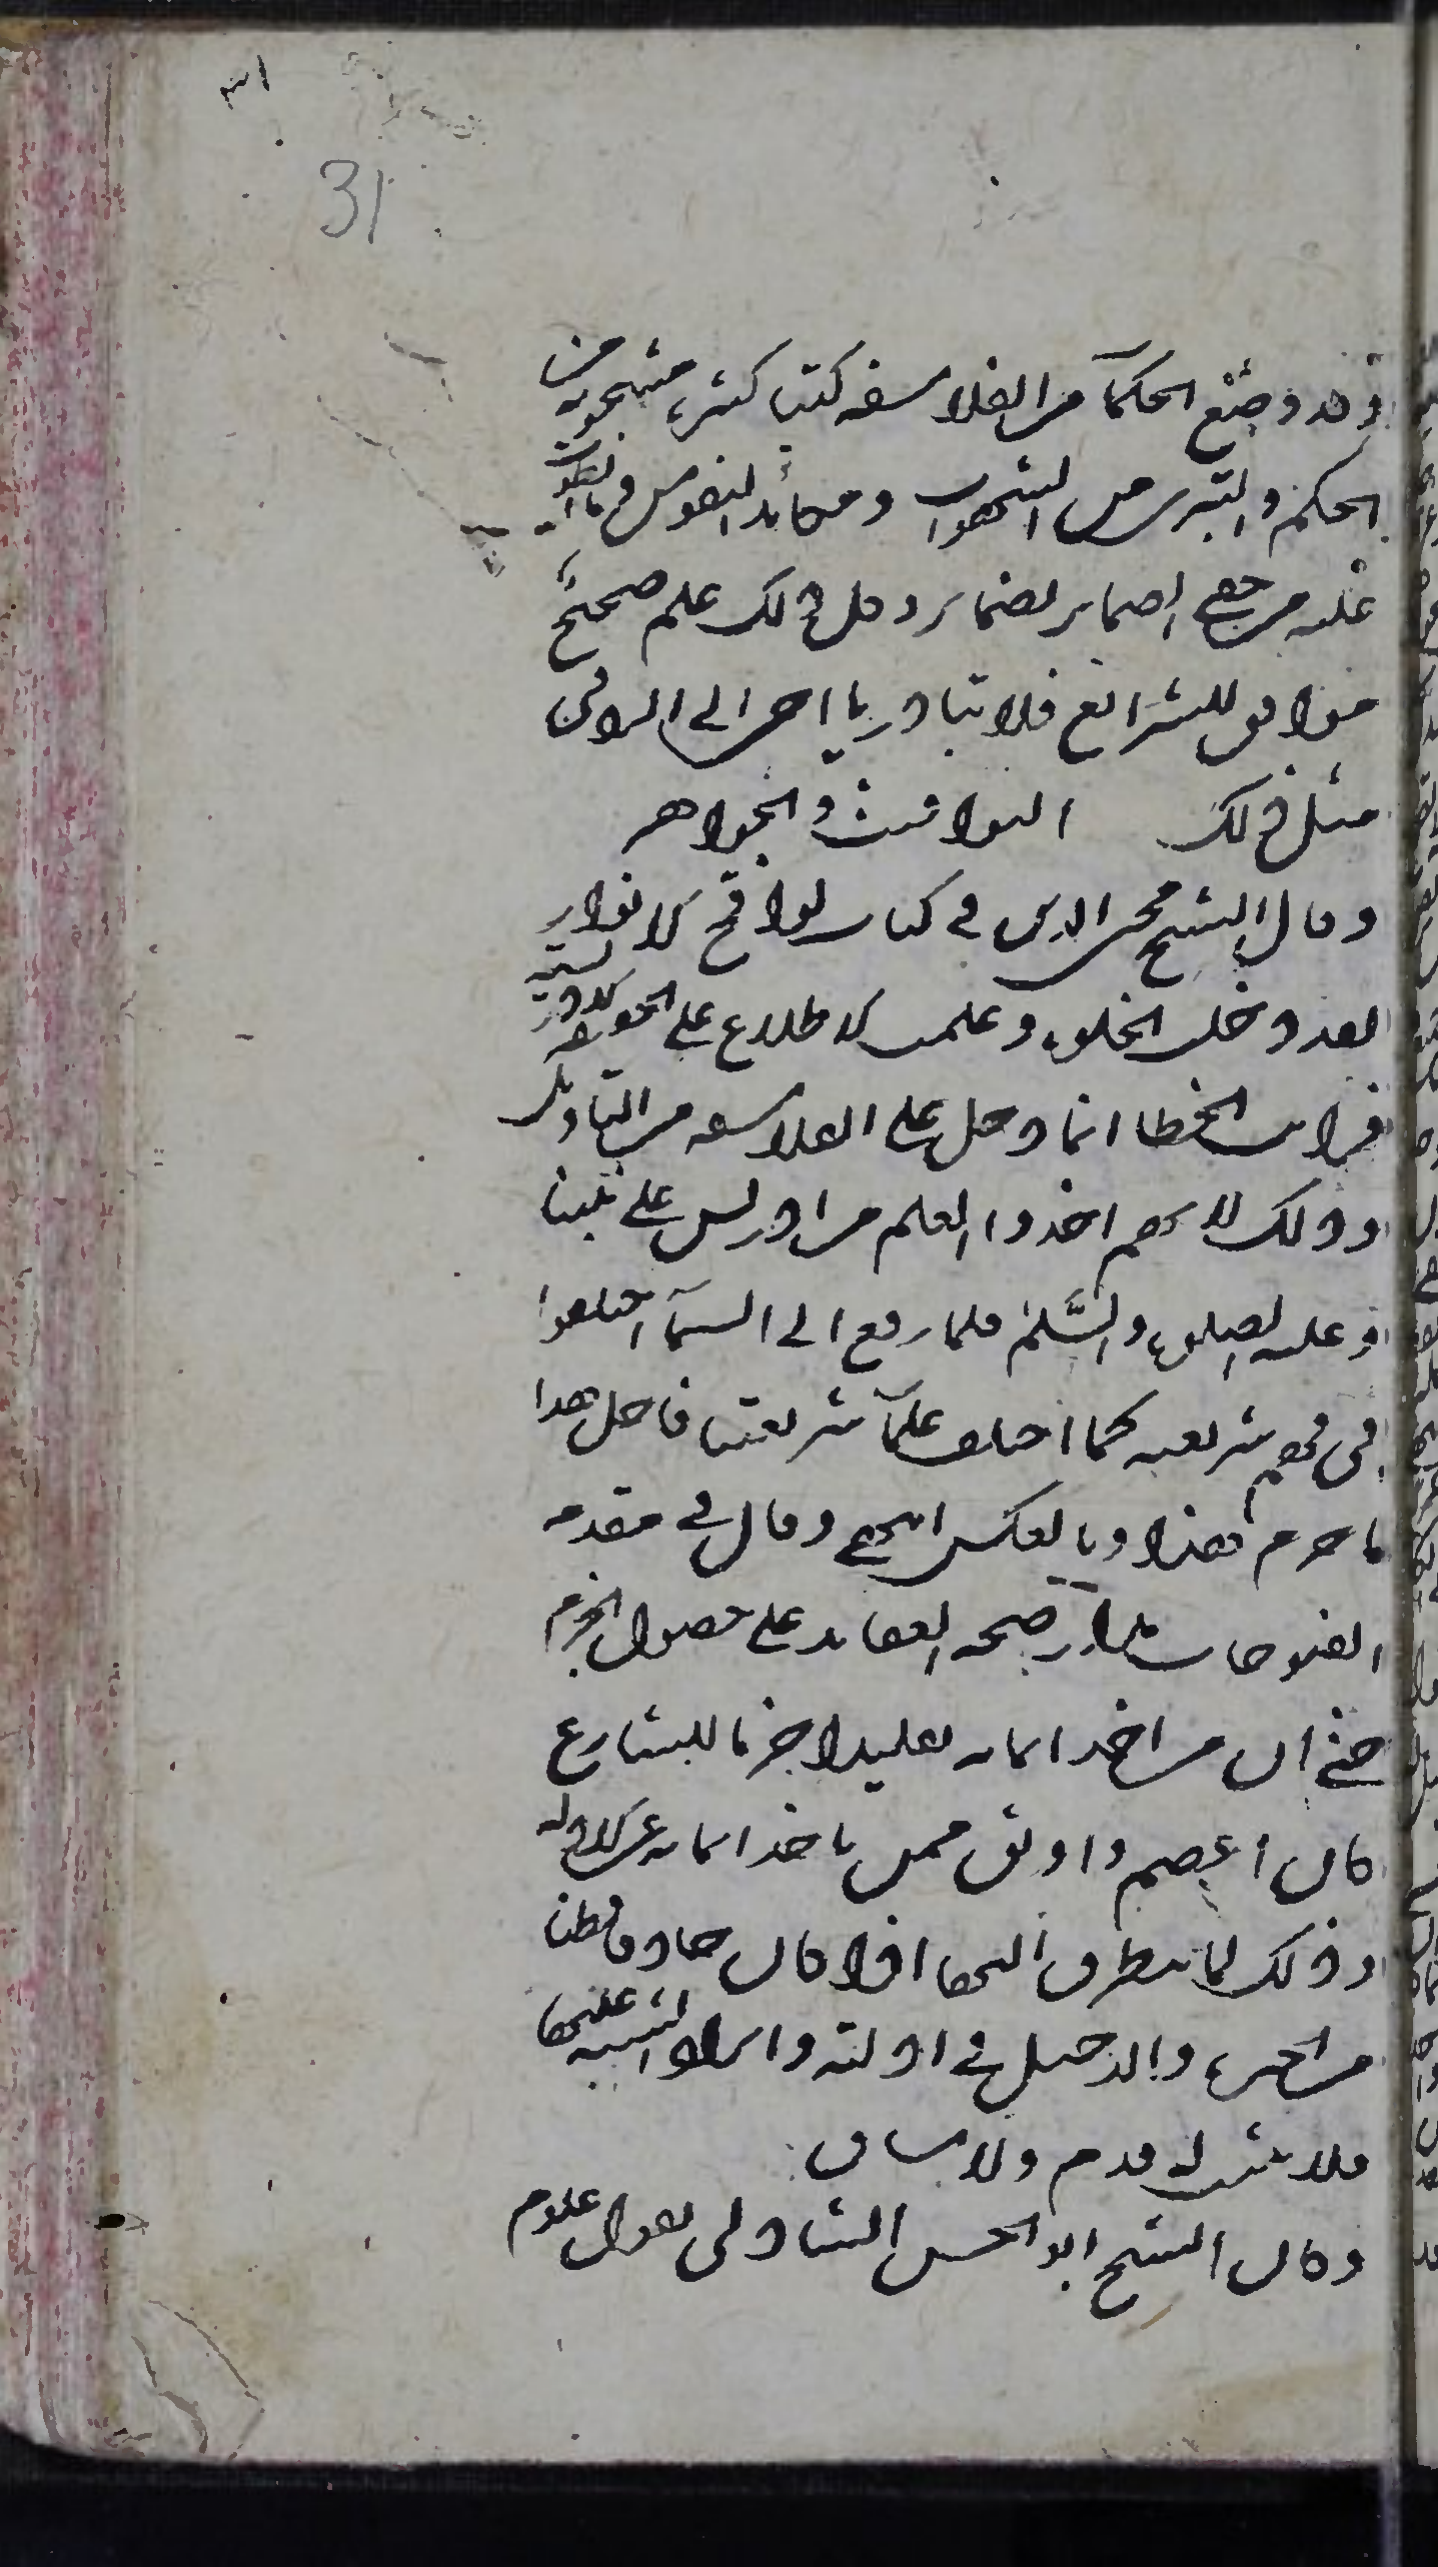 ٣١
31
وقد وضع الحكمآ من الفلاسفه كتبا كثيرة مشحونة من
الحكم والتبري من الشهوات ومكائد النفوس وما انطوت
عليه من خفي الضمائر وكل ذلك علم صحيح
موافق للشرائع فلا تبادر يا اخي الى الرد في
مثل ذلك اليواقيت والجواهر
وقال الشيخ محي الدين في كتاب لواقح الانوار
لقد دخلت الخلوة وعلمت الاطلاع على الحقيقة الادريسية
فرايت الخطا انما دخل على الفلاسفه من التاويل
وذلك لانهم اخذوا العلم من ادريس على نبينا
وعليه الصلوة والسَّلم فلما رفع الى السمآ اختلفوا
في فهم شريعته كما اختلف علمآ شريعتنا فاحل هذا
ما حرم هذا وبالعكس انتهى وقال في مقدمه
الفتوحات مدار صحه العقايد على حصول الجزم
حتى ان من اخذ ايمانه تقليدا جزما للشارع
كان اعصم واوثق ممن ياخذ ايمانه عن الادله
وذلك لما يتطرق اليها اذا كان حاذقا فطنا
من الحيرة والدخيل في ادلته وايراد الشبه عليها
فلا يثبت له قدم ولا ساق
وكان الشيخ ابو الحسن الشاذلي يقول علوم